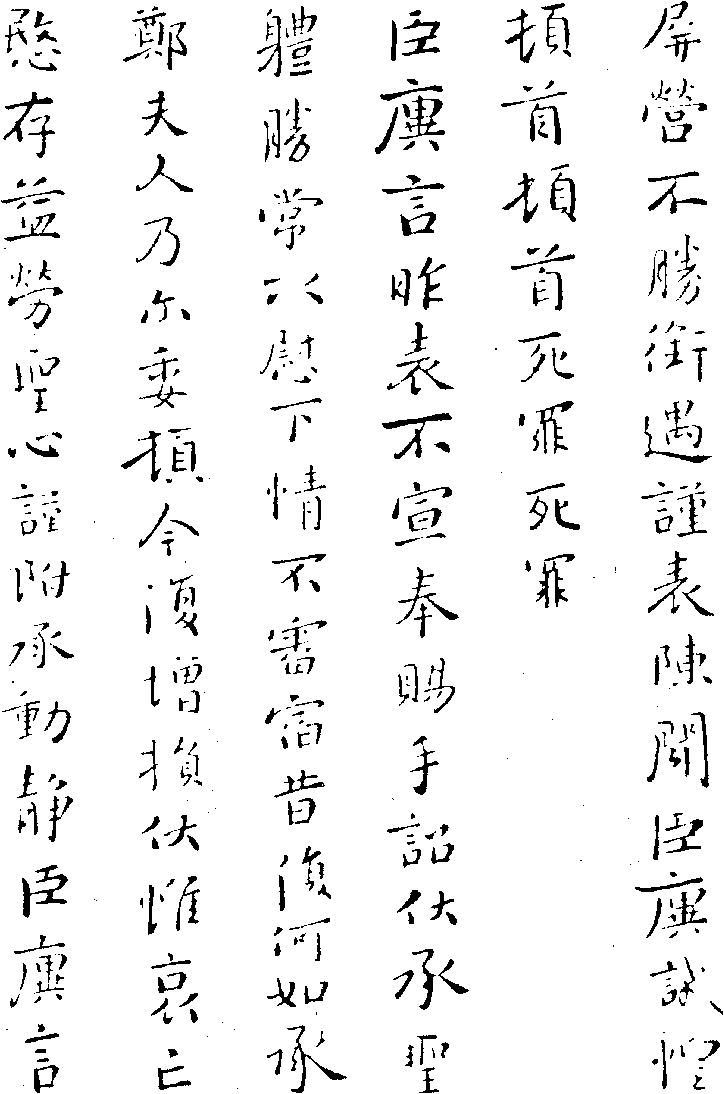 屏營不勝銜遇謹表陳聞臣廙誠惶
頓首頓首死罪死罪
臣廙言昨表不宣奉賜手詔伏承聖
體勝常以慰下情不審宿昔復何如承
鄭夫人乃尓委頓今復增損伏惟哀亡
愍存益勞聖心謹附承動静臣廙言